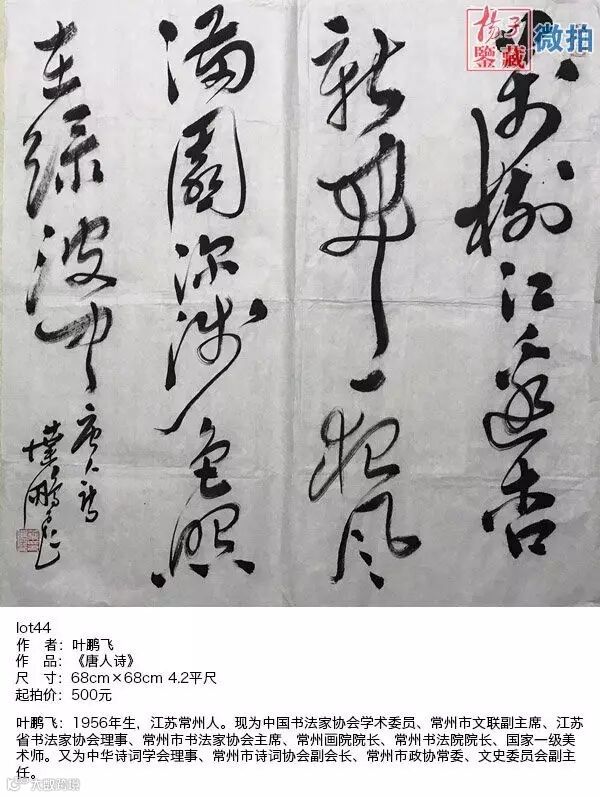 揚子
鑒藏
微拍
萬樹江邊杏
新開一夜風
滿園深淺色照
在綠波中
唐人詩
葉鵬飛
lot44
作 者：叶鹏飞
作 品：《唐人诗》
尺 寸：68cm×68cm 4.2平尺
起拍价：500元
叶鹏飞：1956年生，江苏常州人。现为中国书法家协会学术委员、常州市文联副主席、江苏
省书法家协会理事、常州市书法家协会主席、常州画院院长、常州书法院院长、国家一级美
术师。又为中华诗词学会理事、常州市诗词协会副会长、常州市政协常委、文史委员会副主
任。